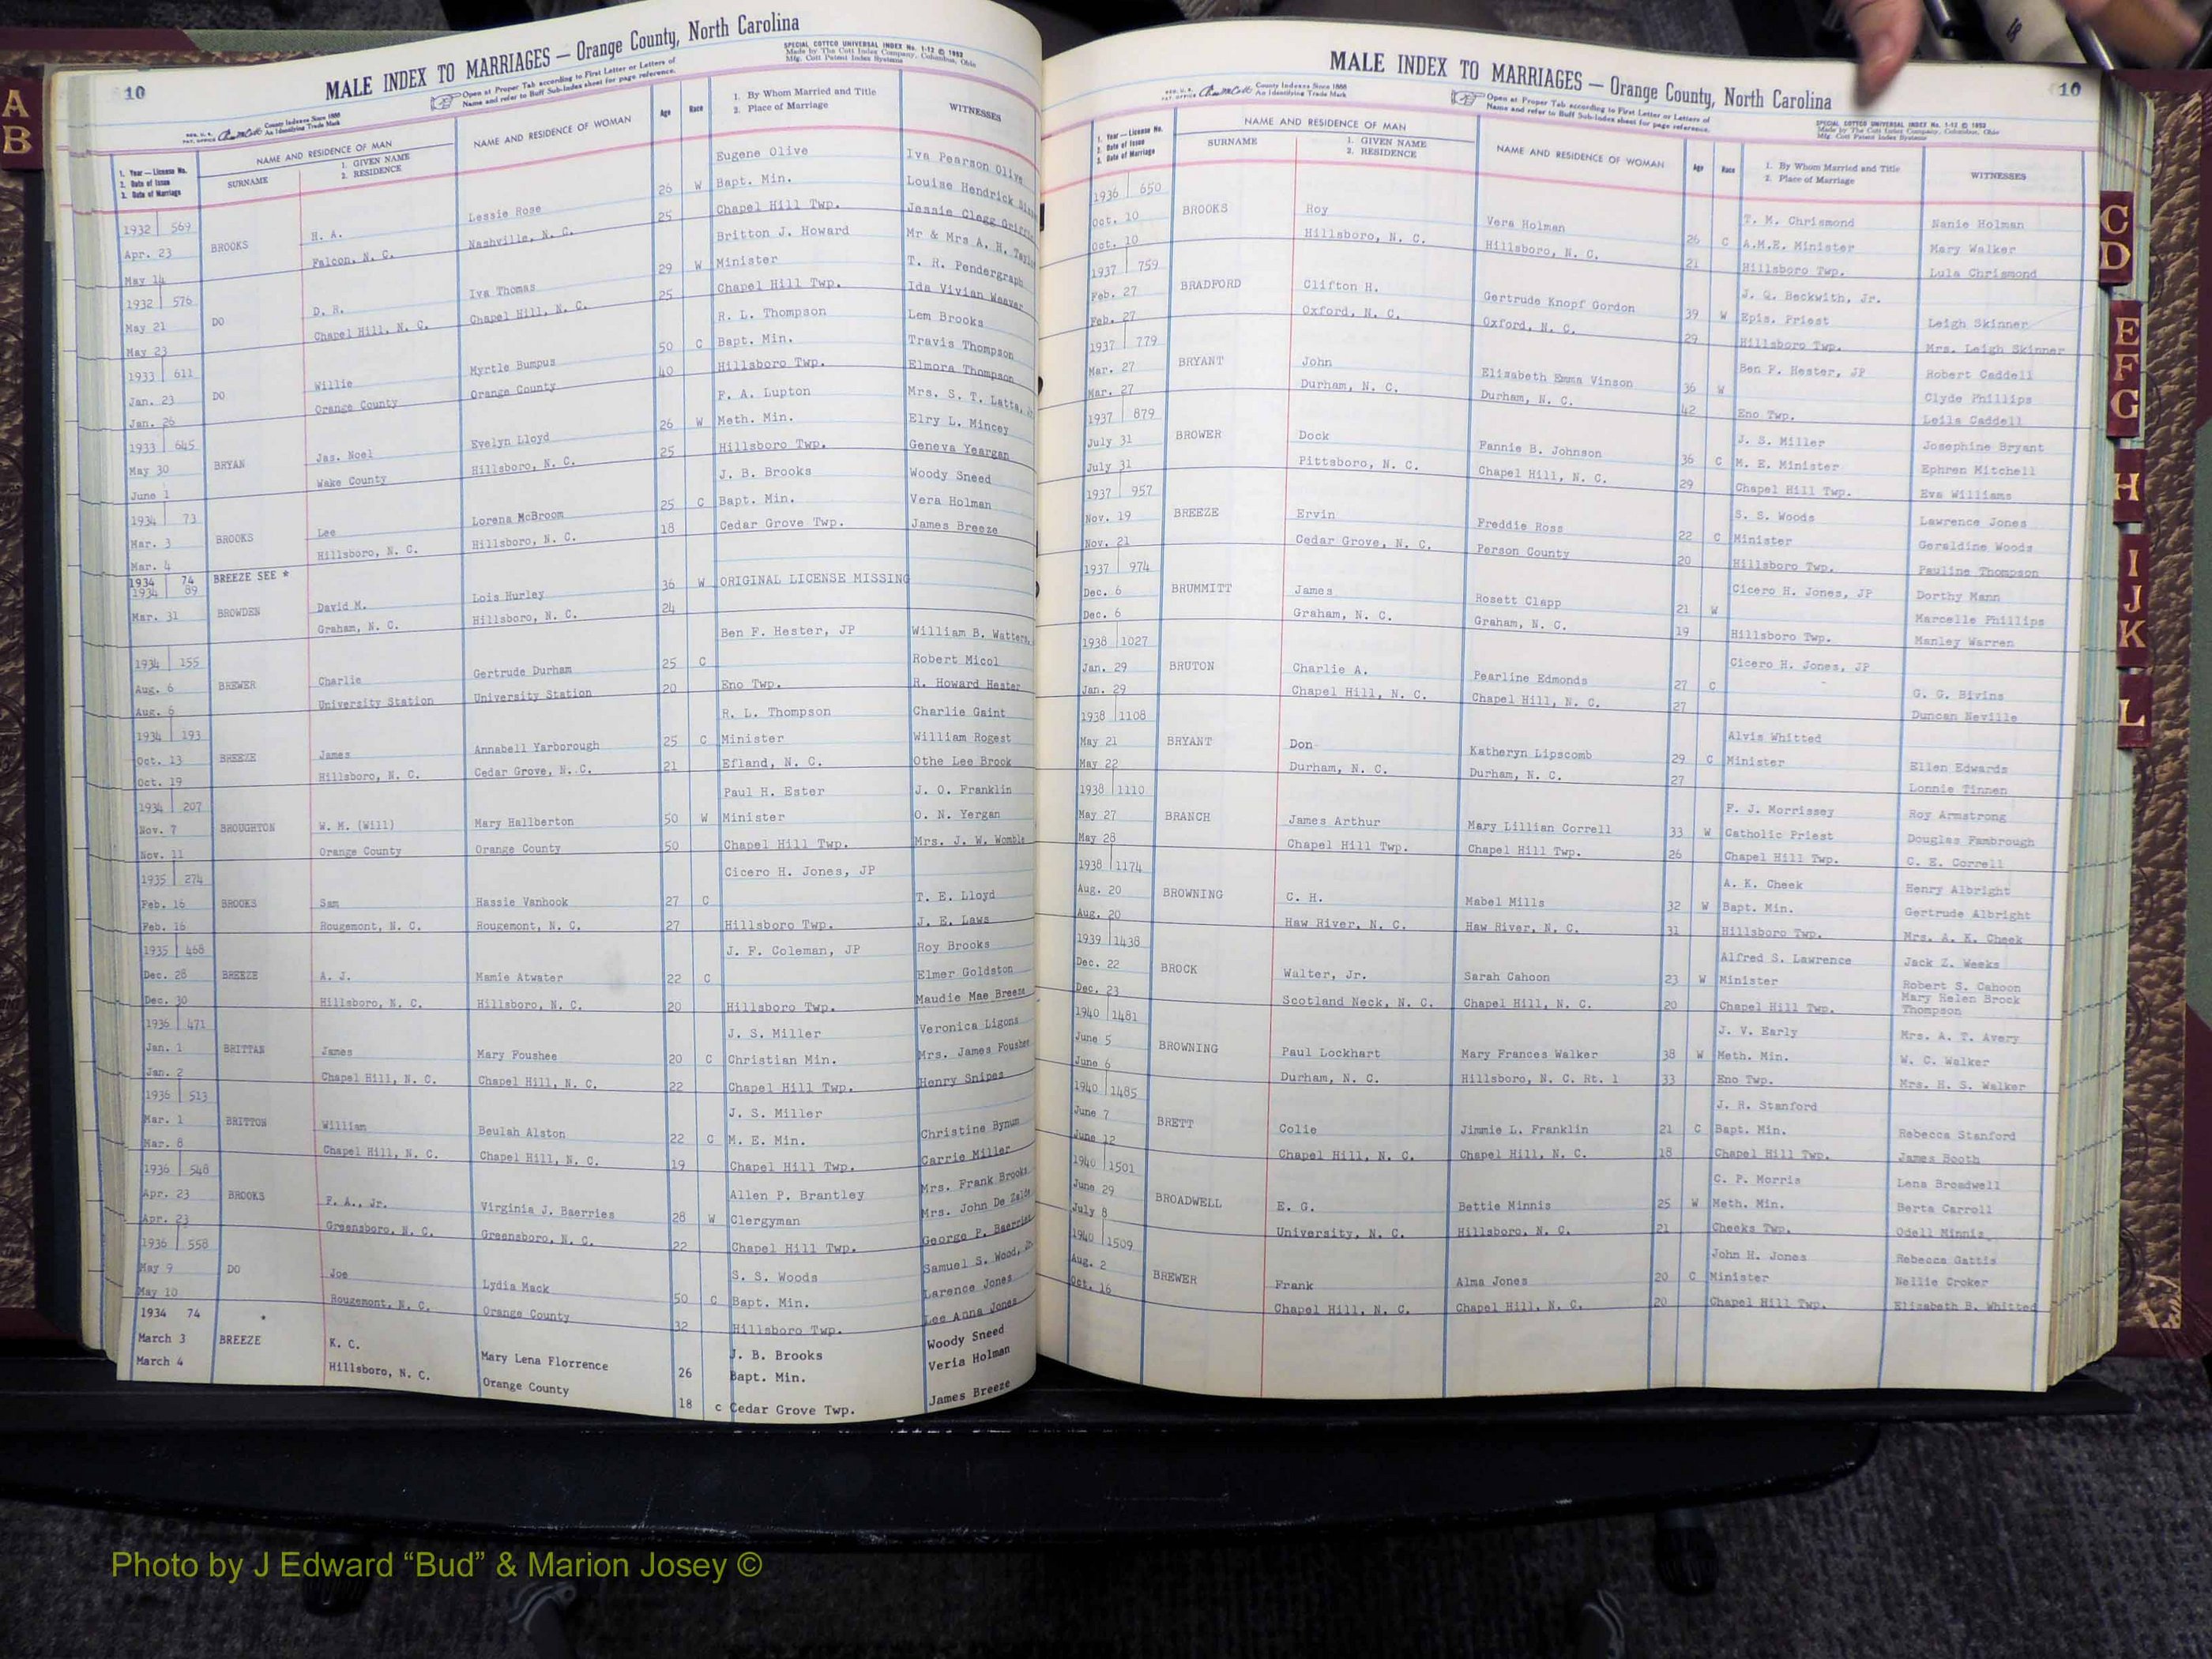 10
MALE INDEX TO MARRIAGES — Orange County, North Carolina
SPECIAL COTTCO UNIVERSAL INDEX No. 1-12 © 1953
Made by The Cott Index Company, Columbus, Ohio
Mfg. Cott Patent Index Systems
Open at Proper Tab according to First Letter or Letters of
Name and refer to Buff Sub-Index sheet for page reference.
County Indexes Since 1888
An Identifying Trade Mark
1. Year — License No.
2. Date of Issue
3. Date of Marriage
NAME AND RESIDENCE OF MAN
SURNAME
1. GIVEN NAME
2. RESIDENCE
NAME AND RESIDENCE OF WOMAN
Age
Race
1. By Whom Married and Title
2. Place of Marriage
WITNESSES
1932 569 Eugene Olive Iva Pearson Olive
Apr. 23 BROOKS H. A. Lessie Rose 26 W Bapt. Min. Louise Hendrick
May 14 Falcon, N. C. Nashville, N. C. 25 Chapel Hill Twp. Jessie Clegg
1932 576 Britton J. Howard Mr & Mrs A. H.
May 21 DO D. R. Iva Thomas 29 W Minister T. R. Pendergraph
May 23 Chapel Hill, N. C. Chapel Hill, N. C. 25 Chapel Hill Twp. Ida Vivian Weaver
1933 611 R. L. Thompson Lem Brooks
Jan. 23 DO Willie Myrtle Bumpus 50 C Bapt. Min. Travis Thompson
Jan. 26 Orange County Orange County 40 Hillsboro Twp. Elmora Thompson
1933 645 F. A. Lupton Mrs. S. T. Latta,
May 30 BRYAN Jas. Noel Evelyn Lloyd 26 W Meth. Min. Elry L. Mincey
June 1 Wake County Hillsboro, N. C. 25 Hillsboro Twp. Geneva Yeargan
1934 73 J. B. Brooks Woody Sneed
Mar. 3 BROOKS Lee Lorena McBroom 25 C Bapt. Min. Vera Holman
Mar. 4 Hillsboro, N. C. Hillsboro, N. C. 18 Cedar Grove Twp. James Breeze
1934 74 BREEZE SEE *
1934 89 David M. Lois Hurley 36 W ORIGINAL LICENSE MISSING
Mar. 31 BROWDEN Graham, N. C. Hillsboro, N. C. 24
1934 155 Ben F. Hester, JP William B.
Aug. 6 BREWER Charlie Gertrude Durham 25 C Robert Micol
Aug. 6 University Station University Station 20 Eno Twp. R. Howard Hester
1934 193 R. L. Thompson Charlie Gaint
Oct. 13 BREEZE James Annabell Yarborough 25 C Minister William Rogest
Oct. 19 Hillsboro, N. C. Cedar Grove, N. C. 21 Efland, N. C. Othe Lee Brook
1934 207 Paul H. Ester J. O. Franklin
Nov. 7 BROUGHTON W. M. (Will) Mary Hallberton 50 W Minister O. N. Yergan
Nov. 11 Orange County Orange County 50 Chapel Hill Twp. Mrs. J. W. Womble
1935 274 Cicero H. Jones, JP
Feb. 16 BROOKS Sam Hassie Vanhook 27 C T. E. Lloyd
Feb. 16 Rougemont, N. C. Rougemont, N. C. 27 Hillsboro Twp. J. E. Laws
1935 468 J. F. Coleman, JP Roy Brooks
Dec. 28 BREEZE A. J. Mamie Atwater 22 C Elmer Goldston
Dec. 30 Hillsboro, N. C. Hillsboro, N. C. 20 Hillsboro Twp. Maudie Mae Breeze
1936 471 J. S. Miller Veronica Ligons
Jan. 1 BRITTAN James Mary Foushee 20 C Christian Min. Mrs. James Foushee
Jan. 2 Chapel Hill, N. C. Chapel Hill, N. C. 22 Chapel Hill Twp. Henry Snipes
1936 513 J. S. Miller
Mar. 1 BRITTON William Beulah Alston 22 C M. E. Min. Christine Bynum
Mar. 8 Chapel Hill, N. C. Chapel Hill, N. C. 19 Chapel Hill Twp. Carrie Miller
1936 548 Allen P. Brantley Mrs. Frank Brooks
Apr. 23 BROOKS F. A., Jr. Virginia J. Baerries 28 W Clergyman Mrs. John De
Apr. 23 Greensboro, N. C. Greensboro, N. C. 22 Chapel Hill Twp. George P. Baerries
1936 558 S. S. Woods Samuel S. Wood,
May 9 DO Joe Lydia Mack 50 C Bapt. Min. Larence Jones
May 10 Rougemont, N. C. Orange County 32 Hillsboro Twp. Lee Anna Jones
1934 74 * J. B. Brooks Woody Sneed
March 3 BREEZE K. C. Mary Lena Florrence 26 Bapt. Min. Veria Holman
March 4 Hillsboro, N. C. Orange County 18 c Cedar Grove Twp. James Breeze
10
MALE INDEX TO MARRIAGES — Orange County, North Carolina
County Indexes Since 1888
An Identifying Trade Mark
Open at Proper Tab according to First Letter or Letters of
Name and refer to Buff Sub-Index sheet for page reference.
SPECIAL COTTCO UNIVERSAL INDEX No. 1-12 © 1953
Made by The Cott Index Company, Columbus, Ohio
Mfg. Cott Patent Index Systems
1. Year — License No.
2. Date of Issue
3. Date of Marriage
NAME AND RESIDENCE OF MAN
SURNAME
1. GIVEN NAME
2. RESIDENCE
NAME AND RESIDENCE OF WOMAN
Age
Race
1. By Whom Married and Title
2. Place of Marriage
WITNESSES
1936 650 T. M. Chrismond Nanie Holman
Oct. 10 BROOKS Roy Vera Holman 26 C A.M.E. Minister Mary Walker
Oct. 10 Hillsboro, N. C. Hillsboro, N. C. 21 Hillsboro Twp. Lula Chrismond
1937 759 J. Q. Beckwith, Jr.
Feb. 27 BRADFORD Clifton H. Gertrude Knopf Gordon 39 W Epis. Priest Leigh Skinner
Feb. 27 Oxford, N. C. Oxford, N. C. 29 Hillsboro Twp. Mrs. Leigh Skinner
1937 779 Ben F. Hester, JP Robert Caddell
Mar. 27 BRYANT John Elizabeth Emma Vinson 36 W Clyde Phillips
Mar. 27 Durham, N. C. Durham, N. C. 42 Eno Twp. Leila Caddell
1937 879 J. S. Miller Josephine Bryant
July 31 BROWER Dock Fannie B. Johnson 36 C M. E. Minister Ephren Mitchell
July 31 Pittsboro, N. C. Chapel Hill, N. C. 29 Chapel Hill Twp. Eva Williams
1937 957 S. S. Woods Lawrence Jones
Nov. 19 BREEZE Ervin Freddie Ross 22 C Minister Geraldine Woods
Nov. 21 Cedar Grove, N. C. Person County 20 Hillsboro Twp. Pauline Thompson
1937 974 Cicero H. Jones, JP Dorthy Mann
Dec. 6 BRUMMITT James Rosett Clapp 21 W Marcelle Phillips
Dec. 6 Graham, N. C. Graham, N. C. 19 Hillsboro Twp. Manley Warren
1938 1027 Cicero H. Jones, JP
Jan. 29 BRUTON Charlie A. Pearline Edmonds 27 C G. G. Bivins
Jan. 29 Chapel Hill, N. C. Chapel Hill, N. C. 27 Duncan Neville
1938 1108 Alvis Whitted
May 21 BRYANT Don Katheryn Lipscomb 29 C Minister Ellen Edwards
May 22 Durham, N. C. Durham, N. C. 27 Lonnie Tinnen
1938 1110 F. J. Morrissey Roy Armstrong
May 27 BRANCH James Arthur Mary Lillian Correll 33 W Catholic Priest Douglas Fambrough
May 28 Chapel Hill Twp. Chapel Hill Twp. 26 Chapel Hill Twp. C. E. Correll
1938 1174 A. K. Cheek Henry Albright
Aug. 20 BROWNING C. H. Mabel Mills 32 W Bapt. Min. Gertrude Albright
Aug. 20 Haw River, N. C. Haw River, N. C. 31 Hillsboro Twp. Mrs. A. K. Cheek
1939 1438 Alfred S. Lawrence Jack Z. Weeks
Dec. 22 BROCK Walter, Jr. Sarah Cahoon 23 W Minister Robert S. Cahoon
Dec. 23 Scotland Neck, N. C. Chapel Hill, N. C. 20 Chapel Hill Twp. Mary Helen Brock
Thompson
1940 1481 J. V. Early Mrs. A. T. Avery
June 5 BROWNING Paul Lockhart Mary Frances Walker 38 W Meth. Min. W. C. Walker
June 6 Durham, N. C. Hillsboro, N. C. Rt. 1 33 Eno Twp. Mrs. H. S. Walker
1940 1485 J. H. Stanford
June 7 BRETT Colie Jimmie L. Franklin 21 C Bapt. Min. Rebecca Stanford
June 12 Chapel Hill, N. C. Chapel Hill, N. C. 18 Chapel Hill Twp. James Booth
1940 1501 C. P. Morris Lena Broadwell
June 29 BROADWELL E. G. Bettie Minnis 25 W Meth. Min. Berta Carroll
July 8 University, N. C. Hillsboro, N. C. 21 Cheeks Twp. Odell Minnis
1940 1509 John H. Jones Rebecca Gattis
Aug. 2 BREWER Frank Alma Jones 20 C Minister Nellie Croker
Oct. 16 Chapel Hill, N. C. Chapel Hill, N. C. 20 Chapel Hill Twp. Elizabeth B. Whitted
A
B
C
D
E
F
G
H
I
J
K
L
Photo by J Edward “Bud” & Marion Josey ©